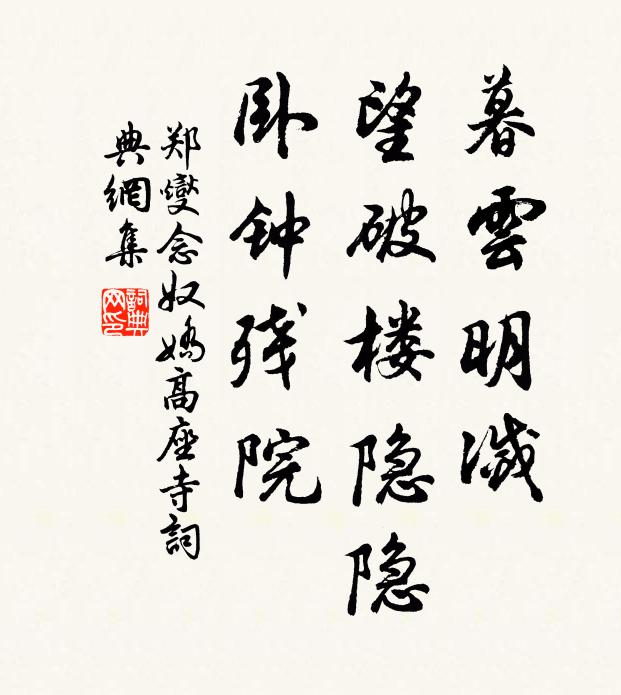 暮雲明滅
望破楼隐隐
卧钟残院
郑燮念奴嬌高座寺詞
典網集
詞典网印